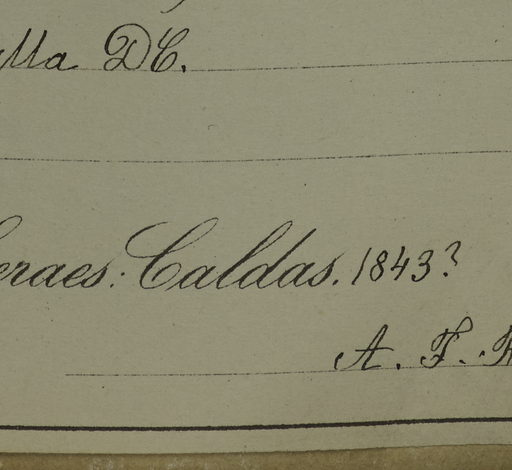 DC.
eraes: Caldas. 1843?
A. F.